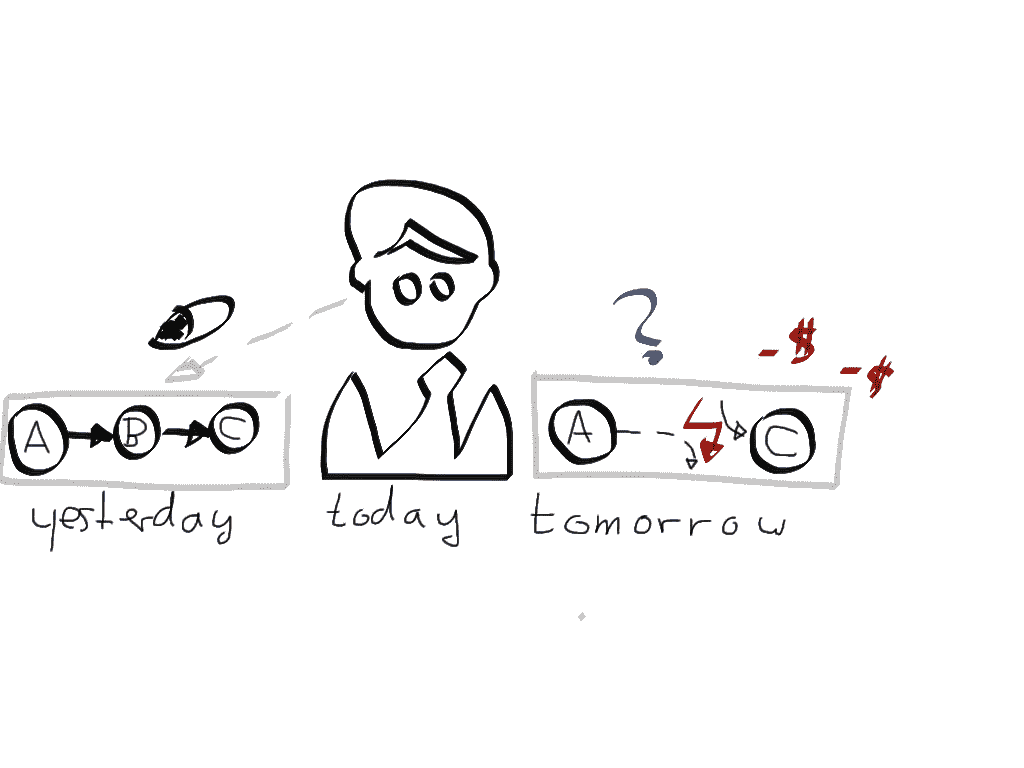 ?
-$
-$
A B C
A C
yesterday today tomorrow